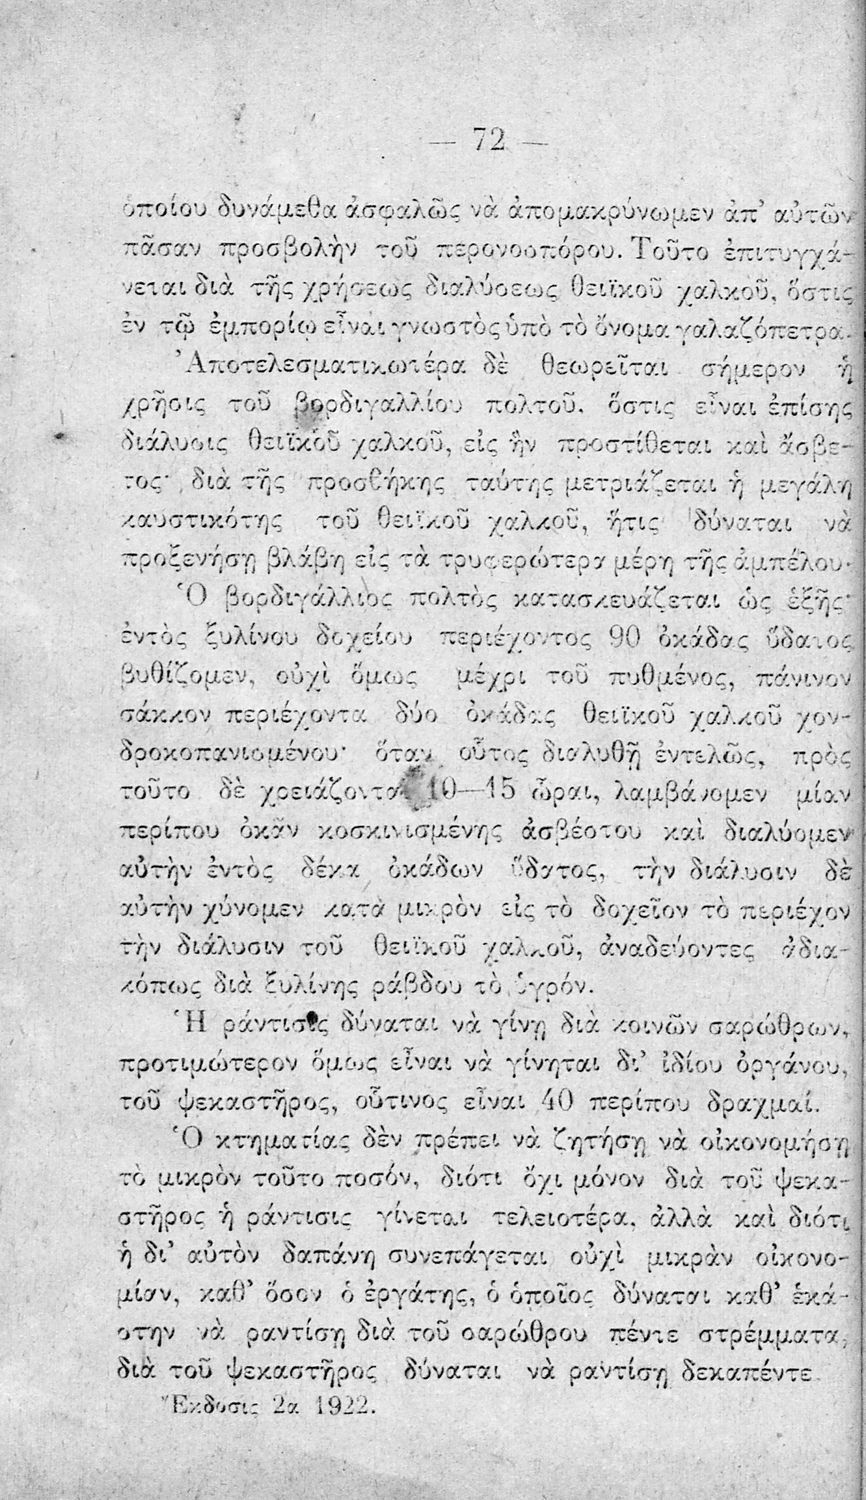 — 72 —
ὁποίου δυνάμεθα ἀσφαλῶς νὰ ἀπομακρύνωμεν ἀπ’ αὐτῶν
πᾶσαν προσβολὴν τοῦ περονοσπόρου. Τοῦτο ἐπιτυγχά-
νεται διὰ τῆς χρήσεως διαλύσεως θειϊκοῦ χαλκοῦ, ὅστις
ἐν τῷ ἐμπορίῳ εἶναι γνωστὸς ὑπὸ τὸ ὄνομα γαλαζόπετρα.
Ἀποτελεσματικωτέρα δὲ θεωρεῖται σήμερον ἡ
χρῆσις τοῦ βορδιγαλλίου πολτοῦ, ὅστις εἶναι ἐπίσης
διάλυσις θειϊκοῦ χαλκοῦ, εἰς ἣν προστίθεται καὶ ἄσβε-
τος· διὰ τῆς προσθήκης ταύτης μετριάζεται ἡ μεγάλη
καυστικότης τοῦ θειϊκοῦ χαλκοῦ, ἥτις δύναται νὰ
προξενήσῃ βλάβη εἰς τὰ τρυφερώτερα μέρη τῆς ἀμπέλου·
Ὁ βορδιγάλλιος πολτὸς κατασκευάζεται ὡς ἑξῆς·
ἐντὸς ξυλίνου δοχείου περιέχοντος 90 ὀκάδας ὕδατος
βυθίζομεν, οὐχὶ ὅμως μέχρι τοῦ πυθμένος, πάνινον
σάκκον περιέχοντα δύο ὀκάδας θειϊκοῦ χαλκοῦ χον-
δροκοπανισμένου· ὅταν οὗτος διαλυθῇ ἐντελῶς, πρὸς
τοῦτο δὲ χρειάζονται 10—15 ὧραι, λαμβάνομεν μίαν
περίπου ὀκᾶν κοσκινισμένης ἀσβέστου καὶ διαλύομεν
αὐτὴν ἐντὸς δέκα ὀκάδων ὕδατος, τὴν διάλυσιν δὲ
αὐτὴν χύνομεν κατὰ μικρὸν εἰς τὸ δοχεῖον τὸ περιέχον
τὴν διάλυσιν τοῦ θειϊκοῦ χαλκοῦ, ἀναδεύοντες ἀδια-
κόπως διὰ ξυλίνης ράβδου τὸ ὑγρόν.
Ἡ ράντισις δύναται νὰ γίνῃ διὰ κοινῶν σαρώθρων,
προτιμώτερον ὅμως εἶναι νὰ γίνηται δι’ ἰδίου ὀργάνου,
τοῦ ψεκαστῆρος, οὗτινος εἶναι 40 περίπου δραχμαί.
Ὁ κτηματίας δὲν πρέπει νὰ ζητήσῃ νὰ οἰκονομήσῃ
τὸ μικρὸν τοῦτο ποσόν, διότι ὄχι μόνον διὰ τοῦ ψεκα-
στῆρος ἡ ράντισις γίνεται τελειοτέρα, ἀλλὰ καὶ διότι
ἡ δι’ αὐτὸν δαπάνη συνεπάγεται οὐχὶ μικρὰν οἰκονο-
μίαν, καθ’ ὅσον ὁ ἐργάτης, ὁ ὁποῖος δύναται καθ’ ἑκά-
στην νὰ ραντίσῃ διὰ τοῦ σαρώθρου πέντε στρέμματα,
διὰ τοῦ ψεκαστῆρος δύναται νὰ ραντίσῃ δεκαπέντε
Ἔκδοσις 2α 1922.